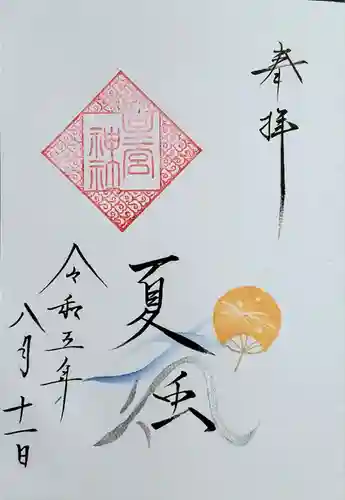 奉拝
宮
神社
夏風
令和五年
八月十一日